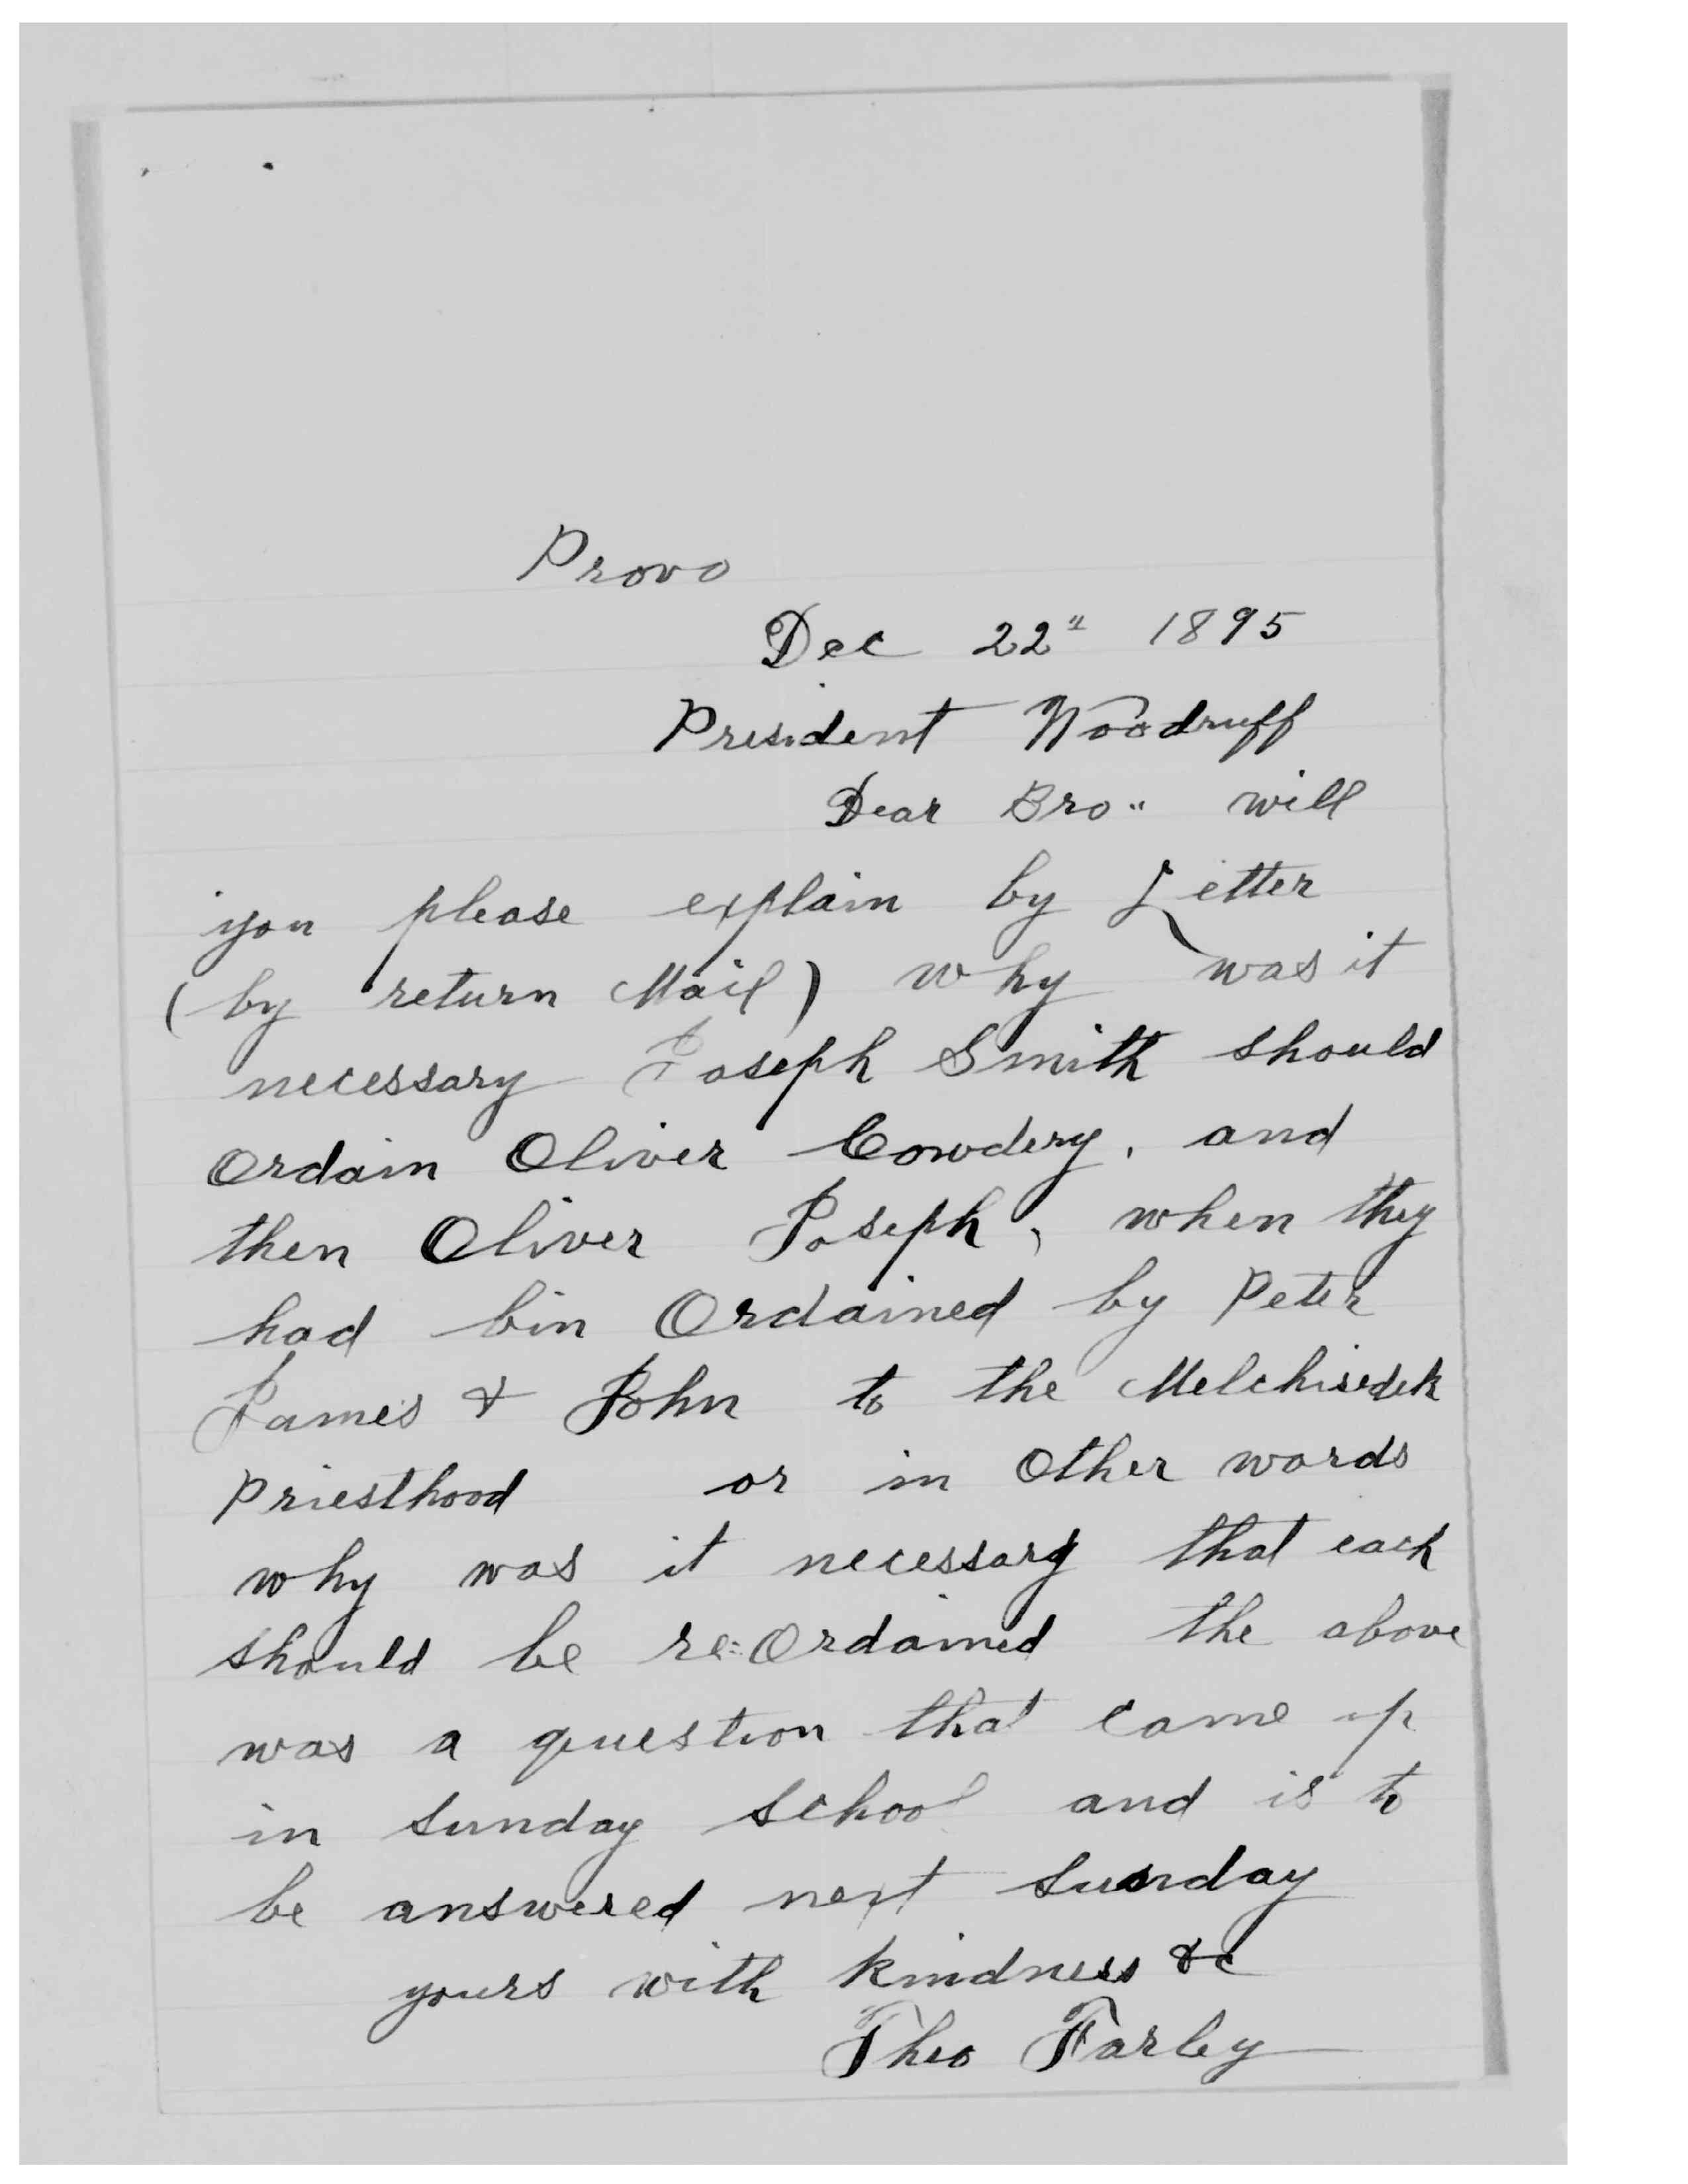 Provo
Dec 22" 1895
President Woodruff
Dear Bro" will
you please explain by Letter
(by return Mail) why was it
necessary Joseph Smith should
Ordain Oliver Cowdery, and
then Oliver Joseph, when they
had bin Ordained by Peter
James & John to the Melchisedek
Priesthood or in Other words
why was it necessary that each
should be re=Ordained the above
was a question that came up
in Sunday School and is to
be answered next Sunday
yours with kindness &c
Theo Farley